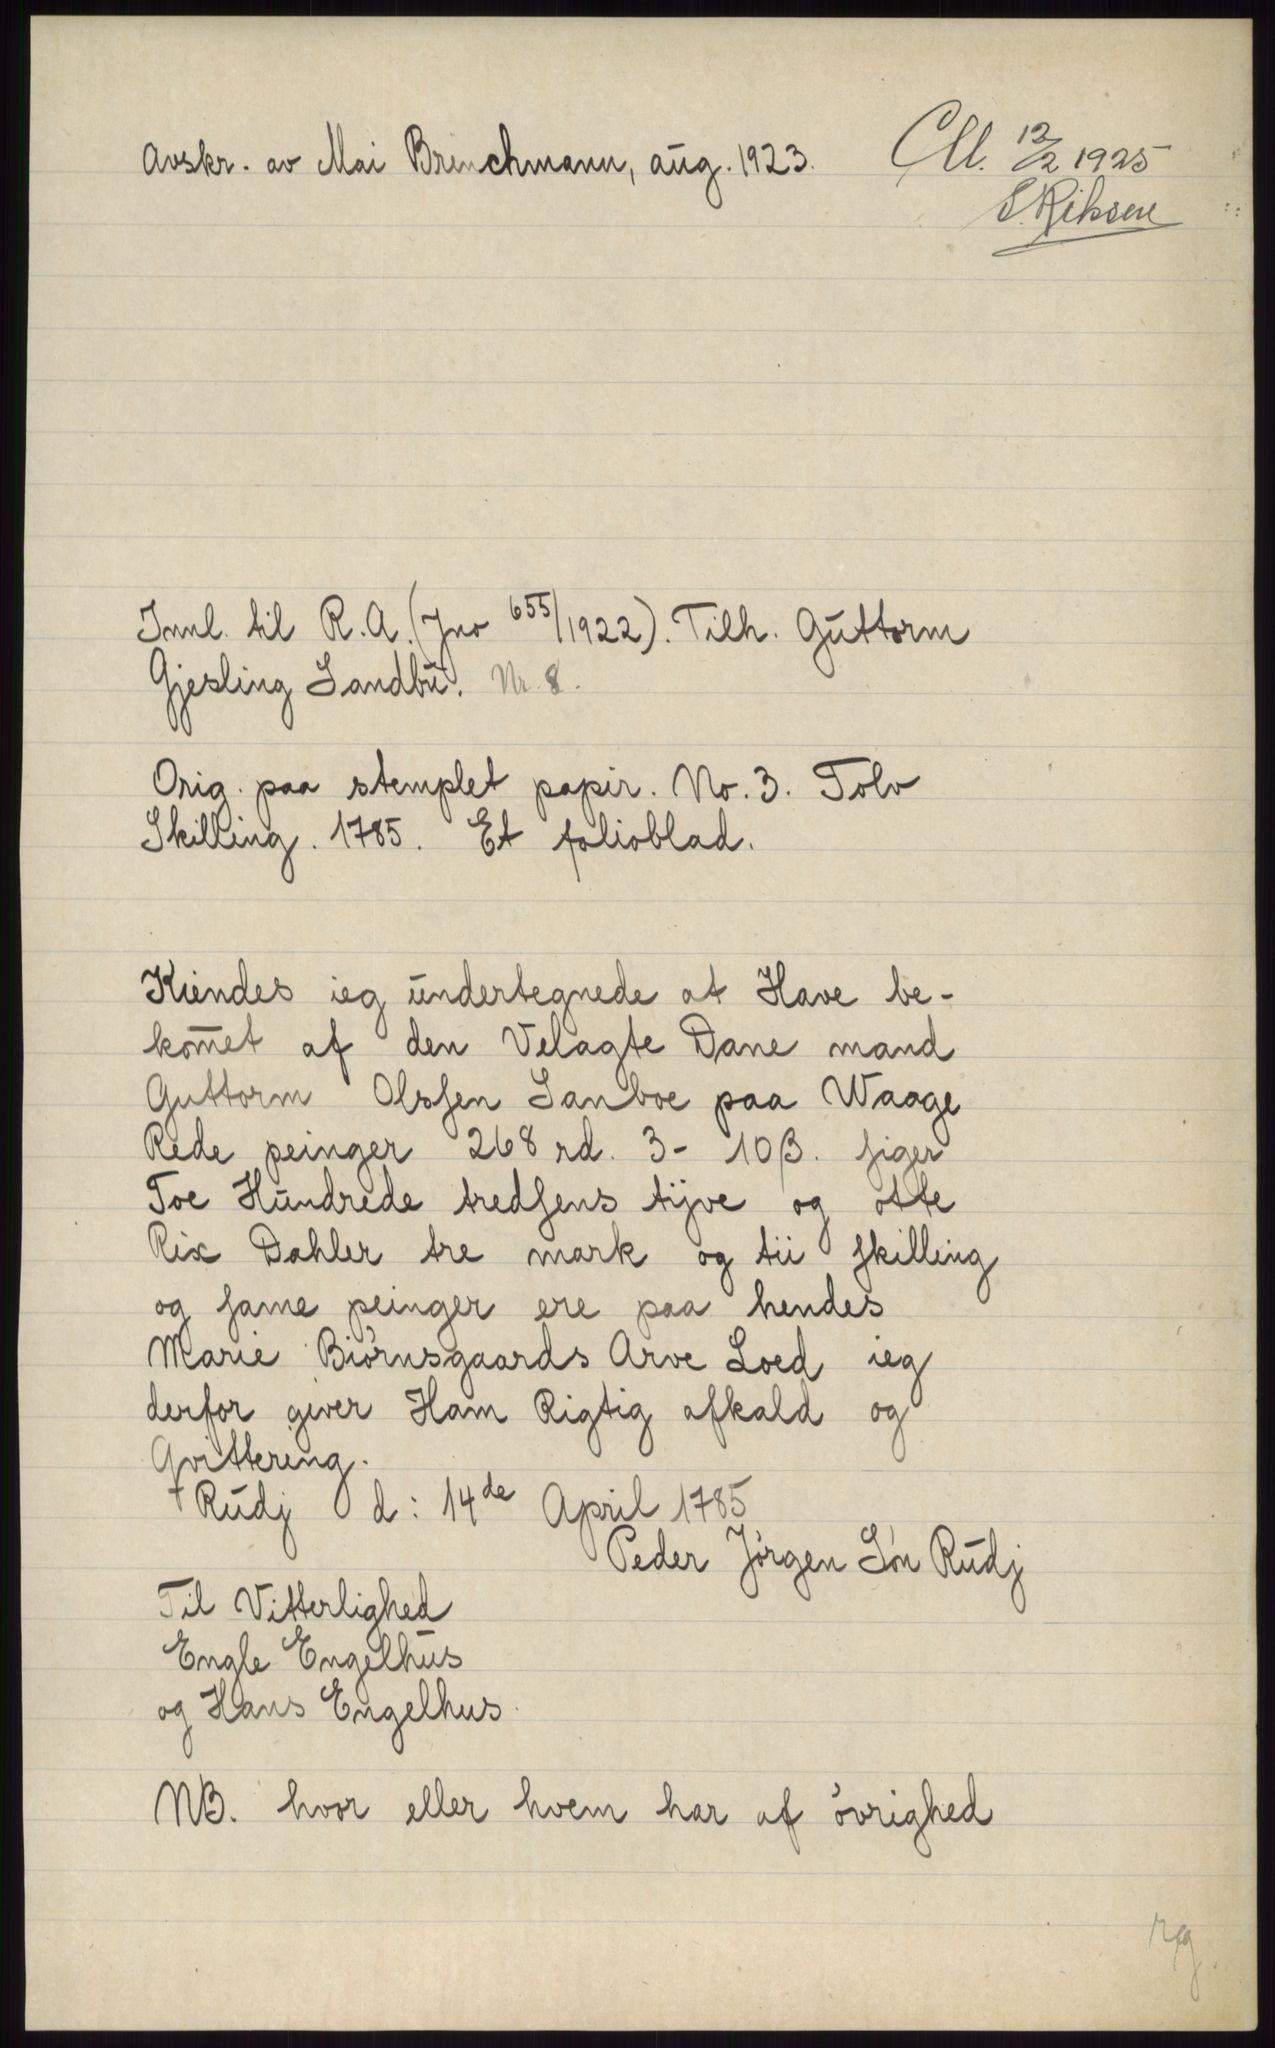 Avskr. av Mai Brinchmann, aug. 1923.
Coll. 12/2 1925
S. Riksen
Innl. til R.A. (Jno 655/1922). Tilh. Guttorm
Gjesling Sandbu. Nr. 8.
Orig. paa stemplet papir. No. 3. Tolv
Skilling. 1785. Et folioblad.
Kiendes ieg undertegnede at Have be-
kom̄et af den Velagte Dane mand
Guttorm Olsſen Sanboe paa Waage
Rede peinger 268 rd. 3- 10 β. ſiger
Toe Hundrede tredſens tijve og otte
Rix Dahler tre mark og tii ſkilling
og ſame peinger ere paa hendes
Marie Biørnsgaards Arve Loed ieg
derfor giver Ham Rigtig afkald og
Qvittering.
Rudj d: 14de April 1785
Peder Jørgen Søn Rudj
Til Vitterlighed
Engle Engelhus
og Hans Engelhus.
NB. hvor eller hvem har af øvrighed
reg.